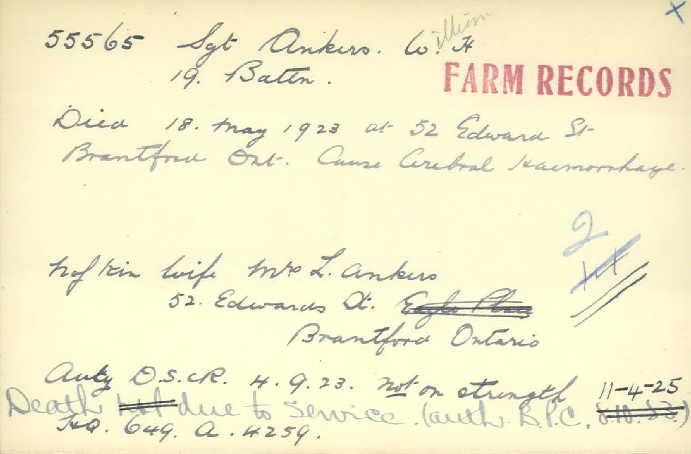 55565 Sgt Ankers. William H
19. Batln.
FARM RECORDS
Died 18. May 1923 at 52 Edward St
Brantford Ont. Cause Cerebral Haemorrhage.
2
N of Kin wife Mrs L. Ankers
52. Edwards St. Eagle Place
Brantford Ontario
Auty D.S.C.R. 4.9.23. Not on strength 11-4-25
Death not due to Service. (auth. B.P.C. 8.10.23.)
HQ. 649. A. 4259.